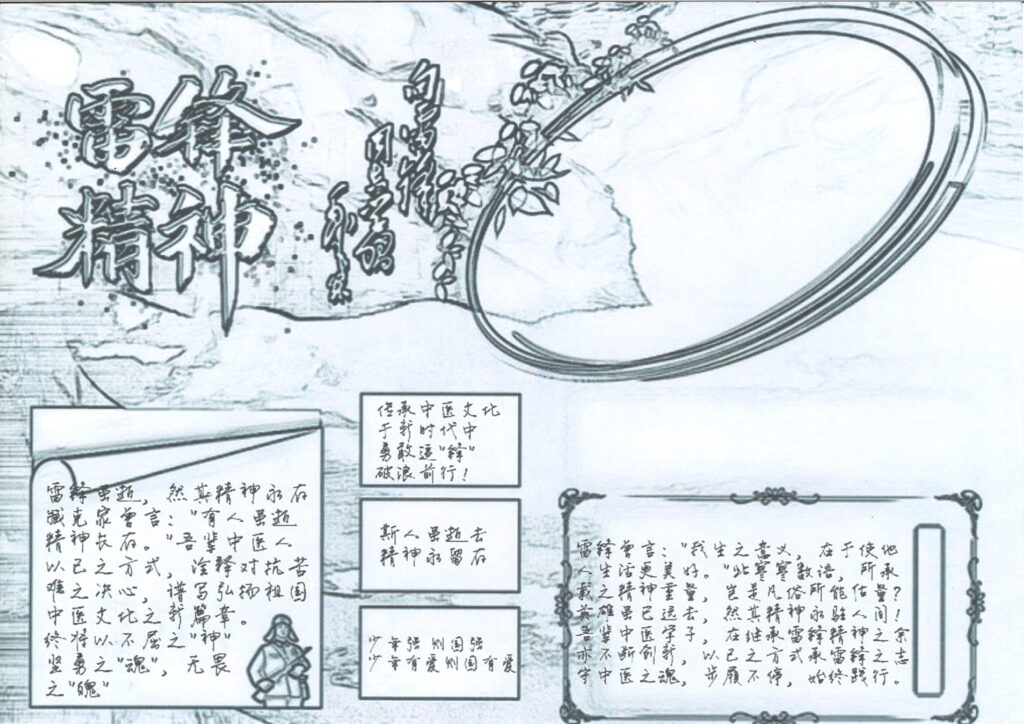 雷锋
精神
向雷锋
同志学习
雷锋虽逝，然其精神永存
臧克家曾言："有人虽逝
精神长存。"吾辈中医人
以已之方式，淦锋对抗苦
难之决心，谱写弘扬祖国
中医文化之新篇章。
终将以不屈之"神"
坚勇之"魂"，无畏
之"魄"
传承中医文化
于新时代中
勇敢追"锋"
破浪前行！
斯人虽逝去
精神永留存
少年强则国强
少年有爱则国有爱
雷锋曾言："我生之意义，在于使他
人生活更美好。"此寥寥数语，所承
载之精神重量，岂是凡俗所能估量？
英雄虽已远去，然其精神永驻人间！
吾辈中医学子，在继承雷锋精神之余
亦不断创新，以已之方式承雷锋之志
守中医之魂，步履不停，始终践行。